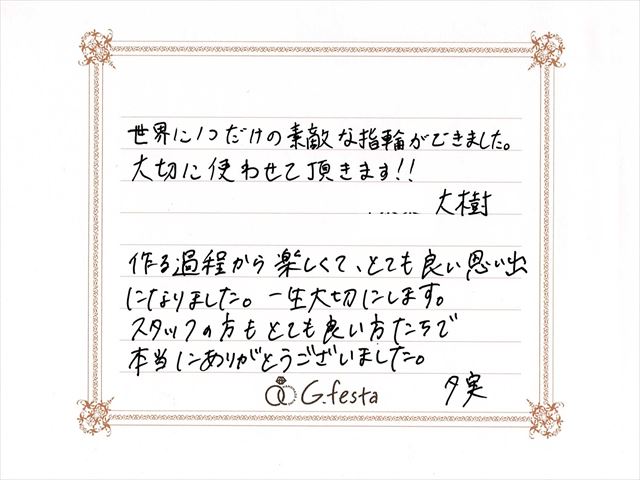 世界に1つだけの素敵な指輪ができました。
大切に使わせて頂きます!!
大樹
作る過程から楽しくて、とても良い思い出
になりました。一生大切にします。
スタッフの方もとても良い方たちで
本当にありがとうございました。
夕実
G.festa